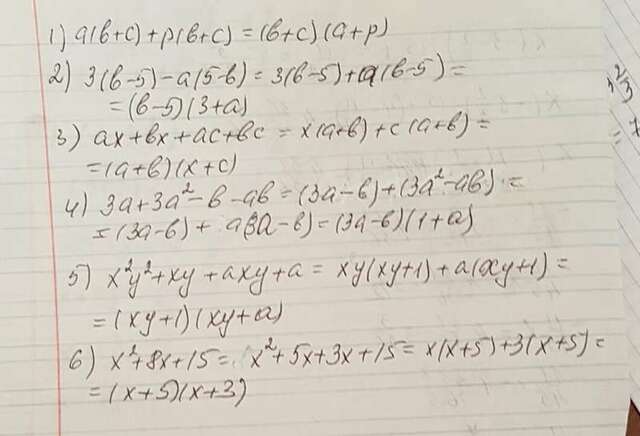 1) a(b+c)+p(b+c)=(b+c)(a+p)
2) 3(b-5)-a(5-b)=3(b-5)+a(b-5)=
=(b-5)(3+a)
3) ax+bx+ac+bc=x(a+b)+c(a+b)=
=(a+b)(x+c)
4) 3a+3a²-b-ab=(3a-b)+(3a²-ab)=
=(3a-b)+a(3a-b)=(3a-b)(1+a)
5) x²y²+xy+axy+a=xy(xy+1)+a(xy+1)=
=(xy+1)(xy+a)
6) x²+8x+15=x²+5x+3x+15=x(x+5)+3(x+5)=
=(x+5)(x+3)